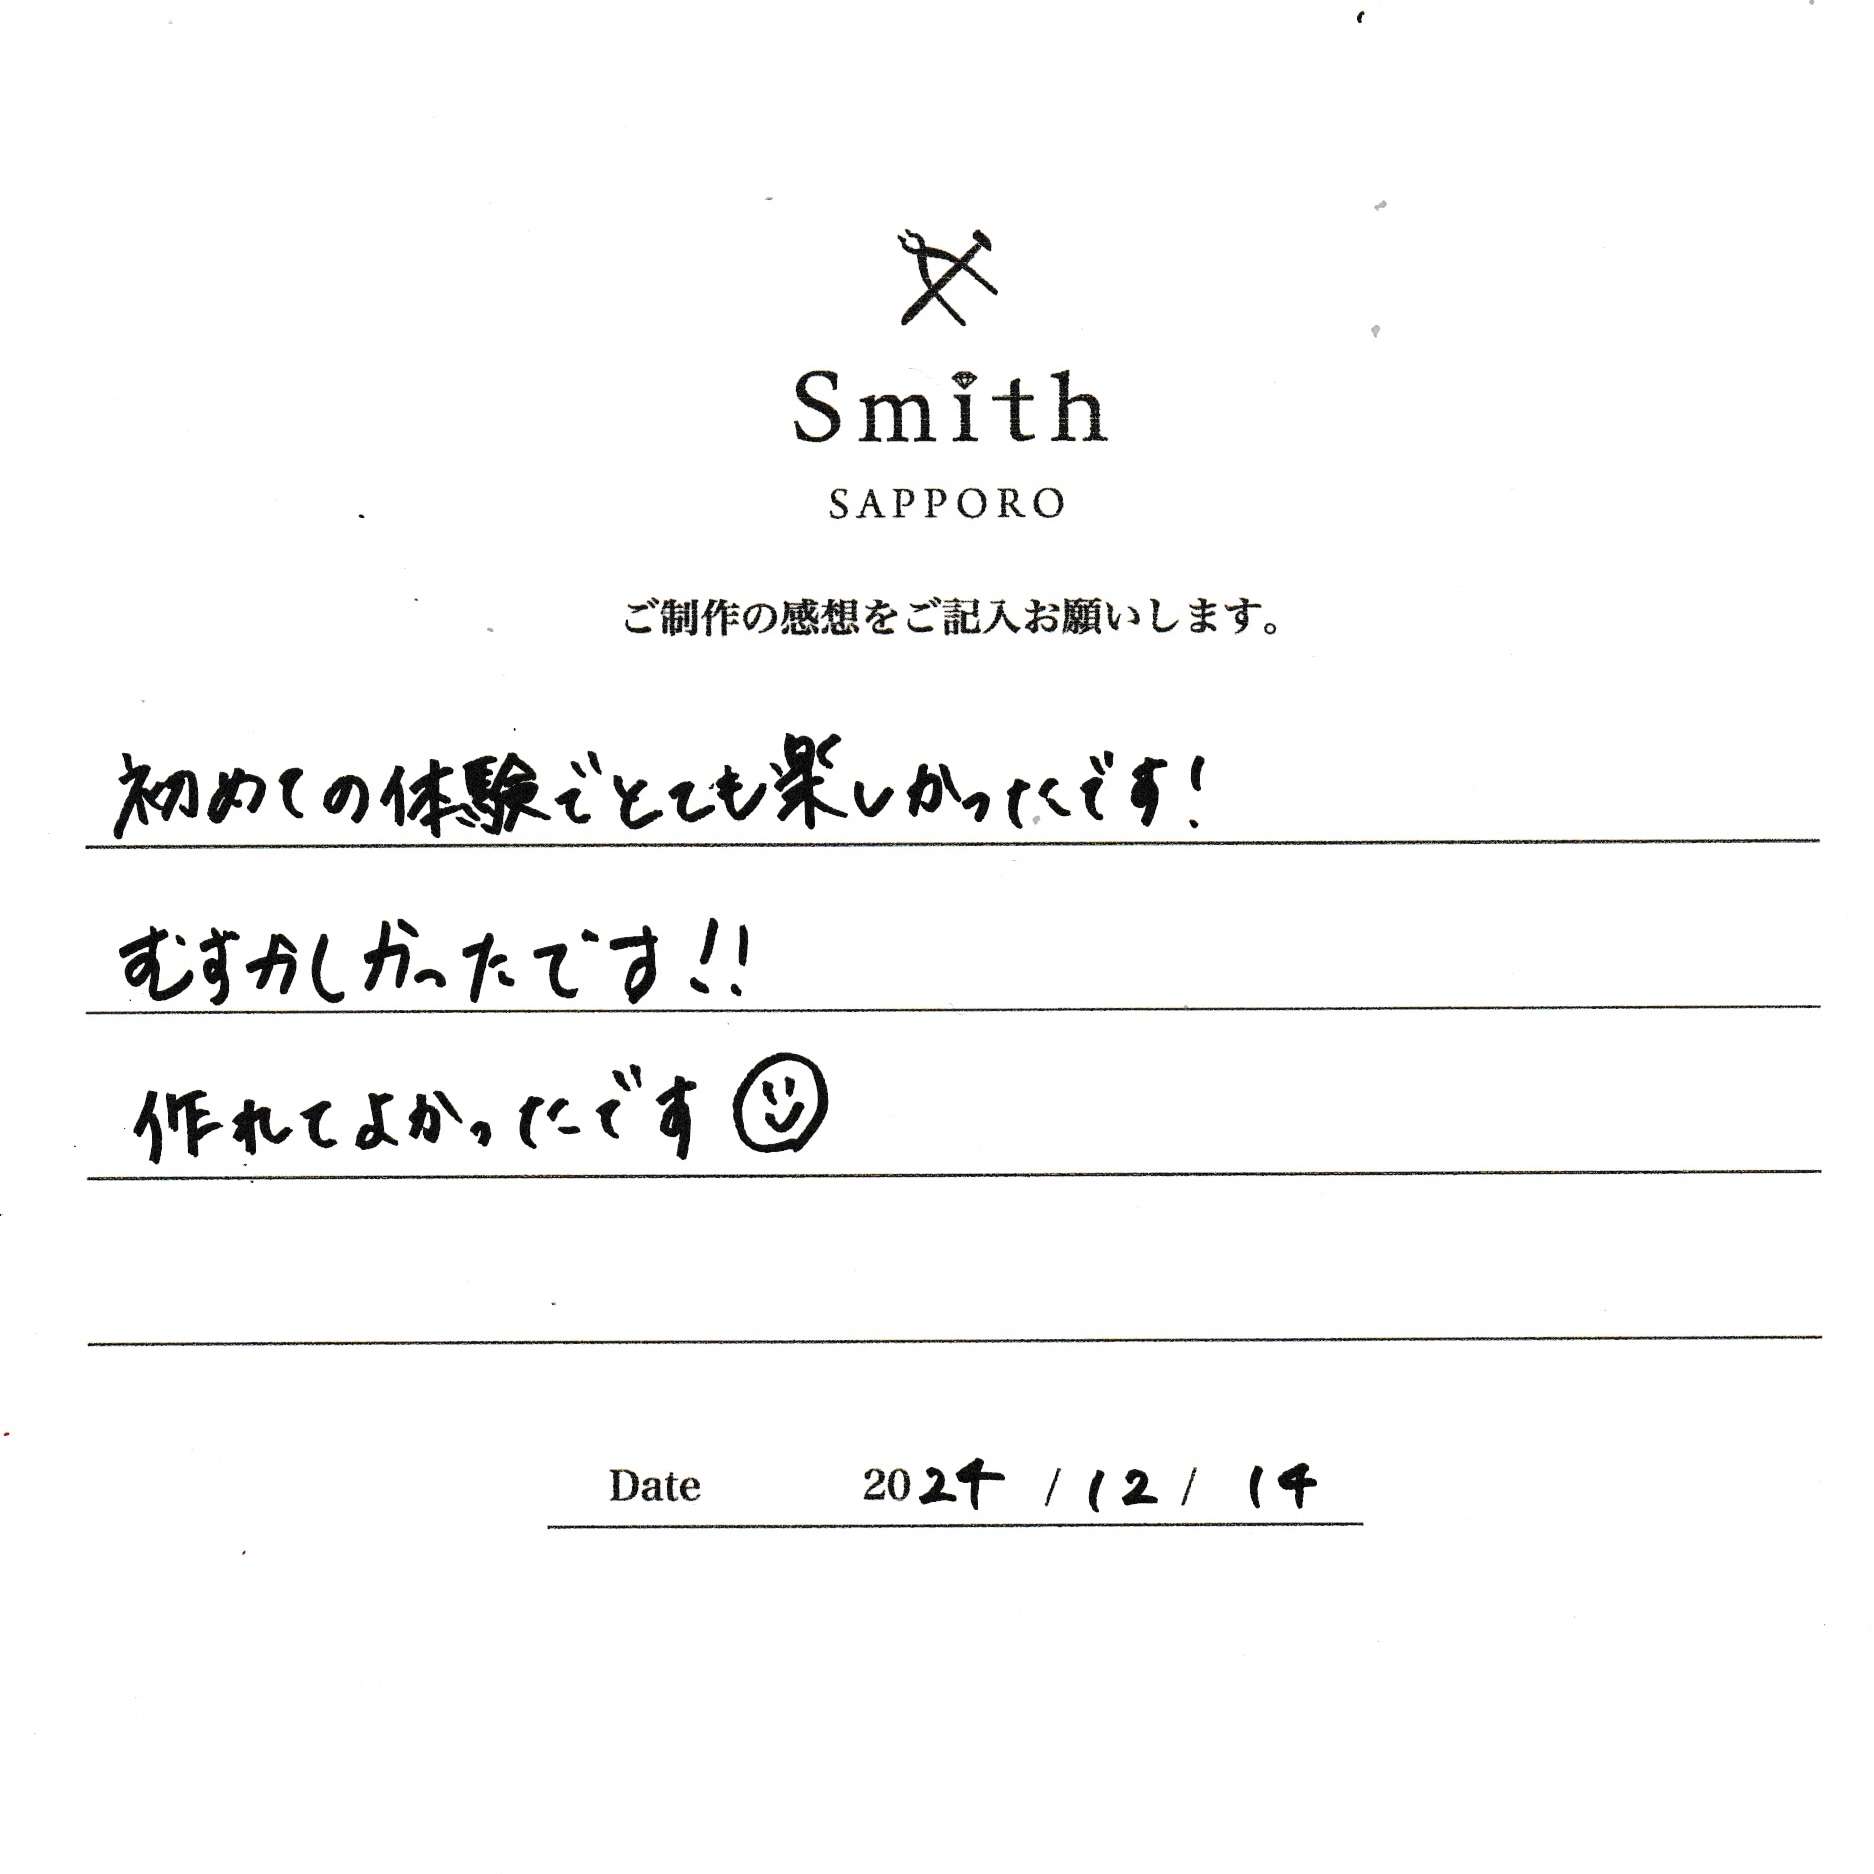 Smith
SAPPORO
ご制作の感想をご記入お願いします。
初めての体験でとても楽しかったです!
むずかしかったです!!
作れてよかったです
Date 2024 / 12 / 14